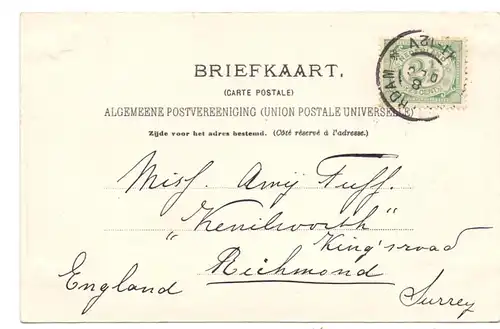 BRIEFKAART.
(CARTE POSTALE)
ALGEMEENE POSTVEREENIGING (UNION POSTALE UNIVERSELLE)
Zijde voor het adres bestemd. (Côté réservé à l'adresse.)
Miss. Amy Tuff.
"Kenilworth"
King's road
Richmond
England
Surrey
RDAM